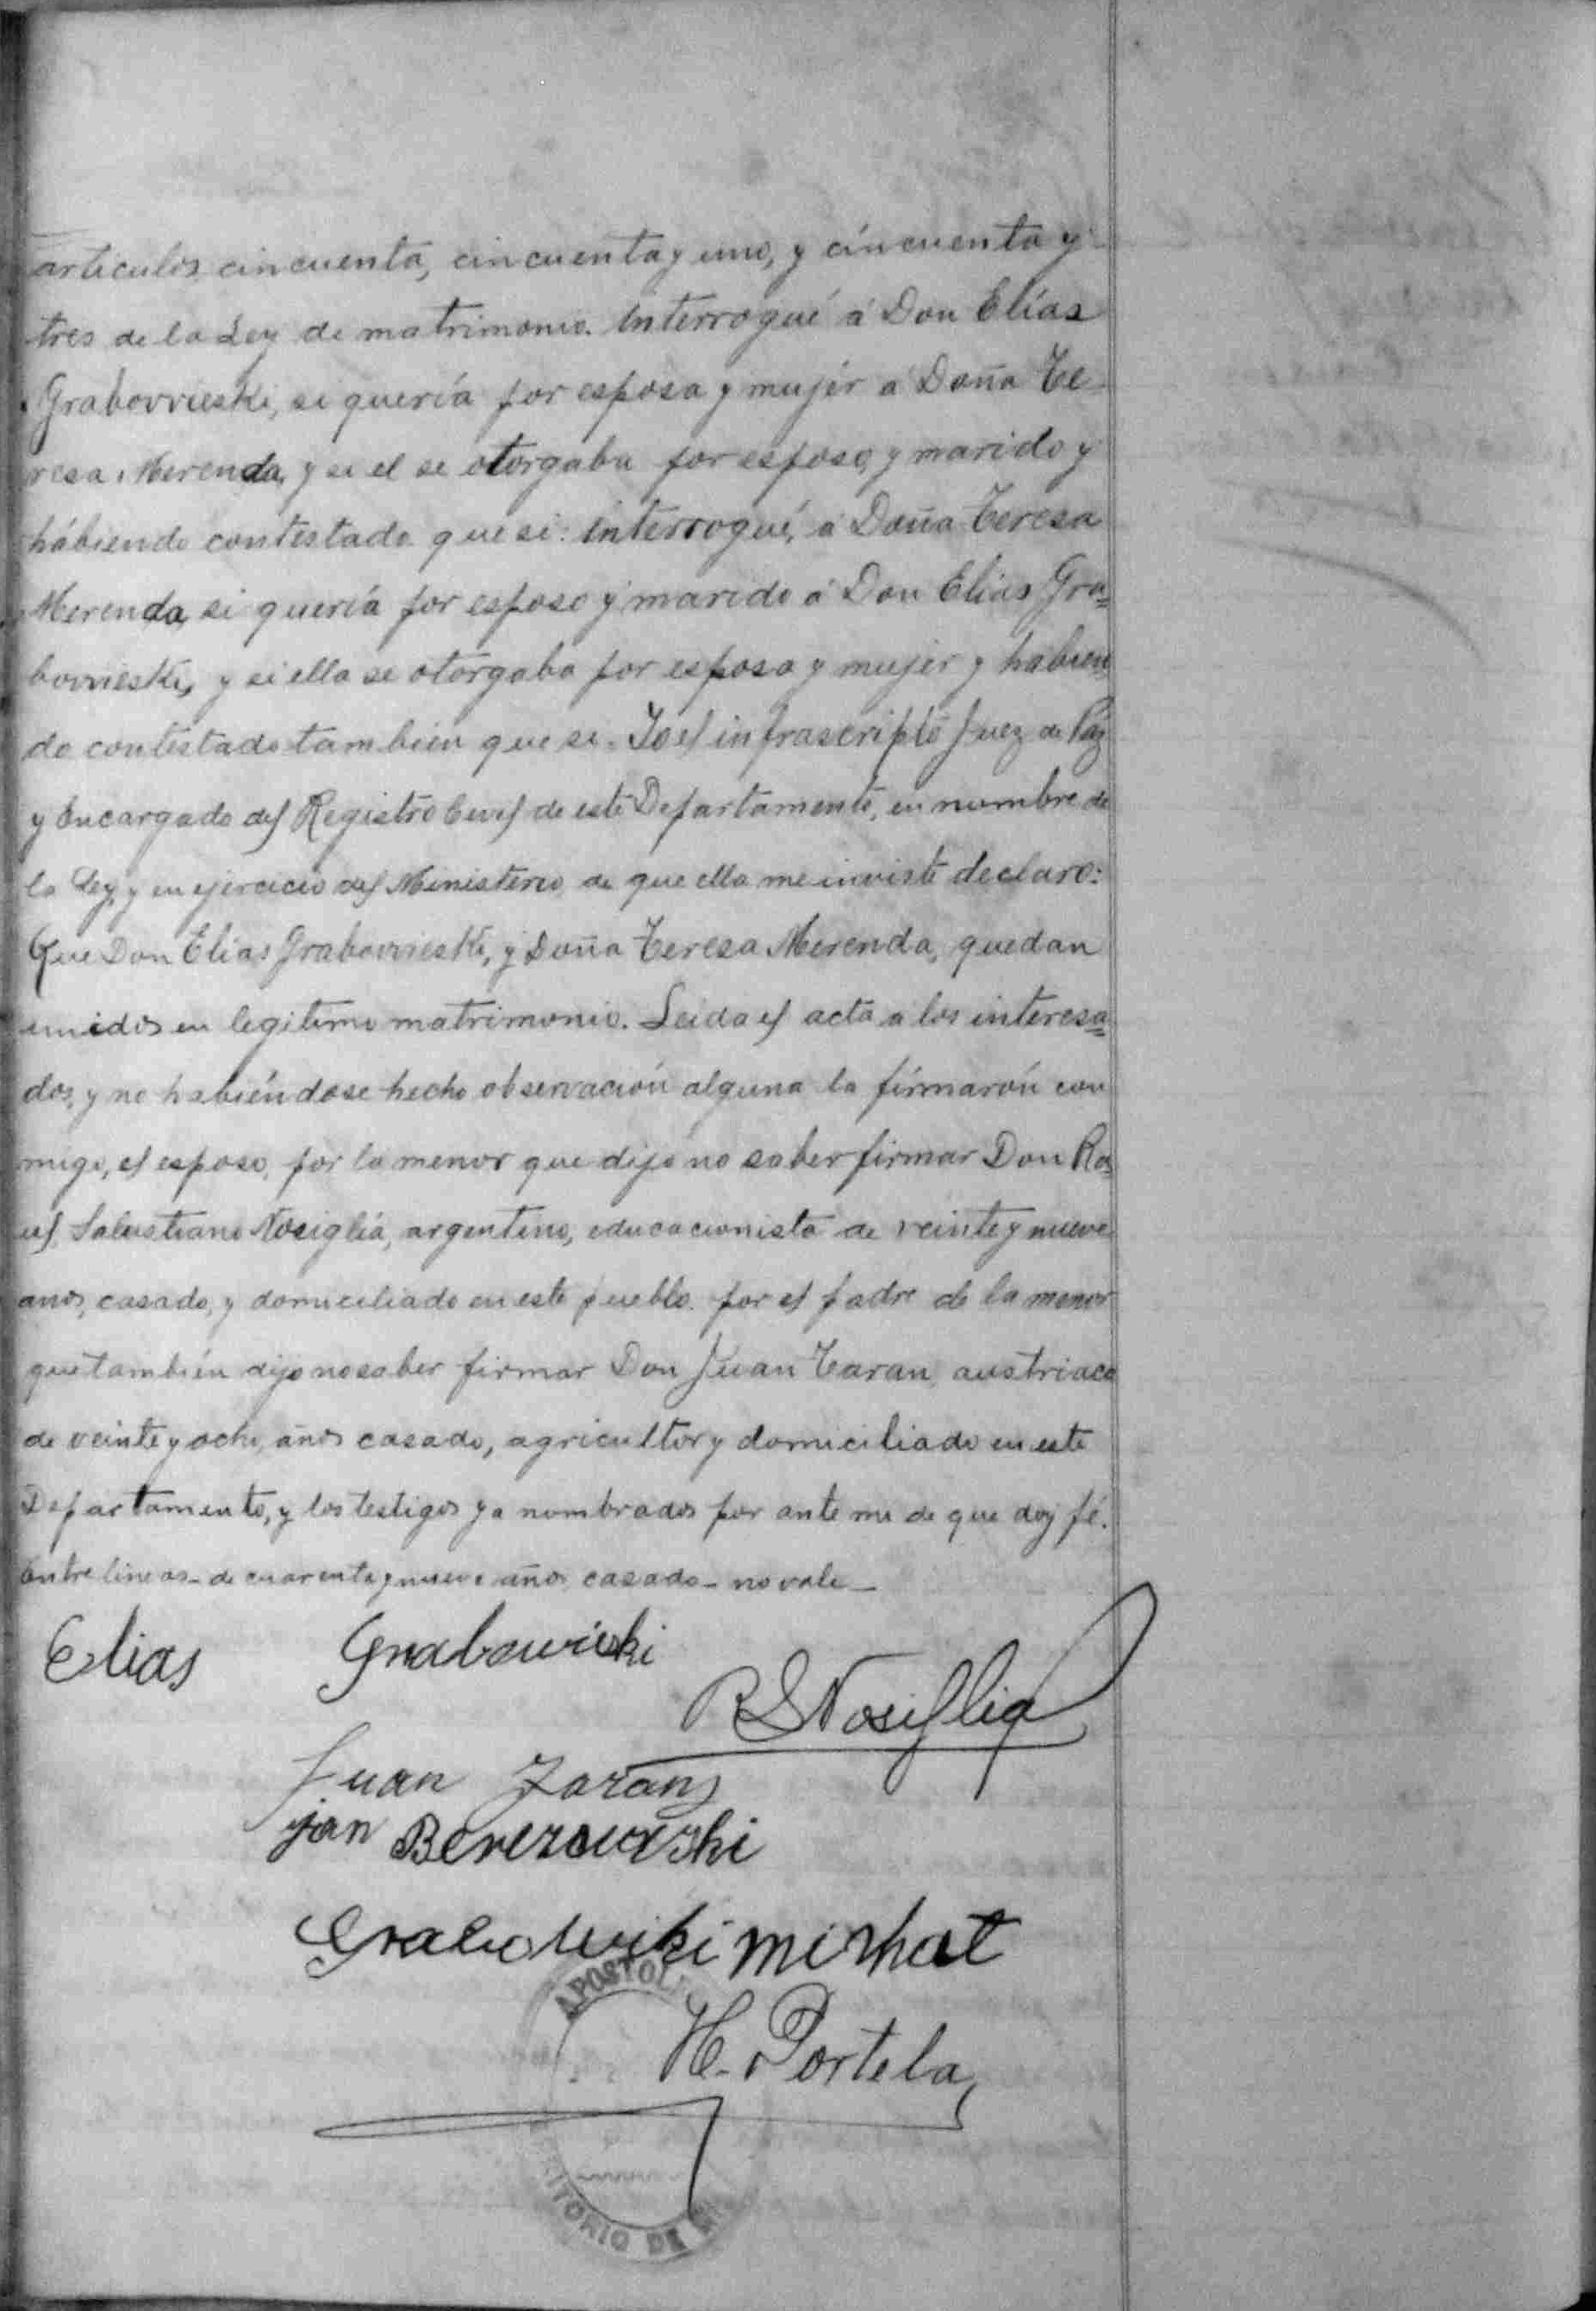 articulos cincuenta, cincuenta y uno, y cincuenta y
tres de la Ley de matrimonio. Interrogué á Don Elías
Grabovvieski, si quería por esposa y mujér á Doña Te-
resa Merenda, y si el se otorgaba por esposo, y marido y
hábiendo contestado que si: interrogué, á Doña Teresa
Merenda, si quería por esposo y marido á Don Elias Gra=
bovvieski, y si ella se otorgaba por esposa y mujer y habien
do contestado tambien que si. Yo el infrascripto Juez de Paz
y Encargado del Registro Civil de este Departamento, en nombre de
la Ley, y en ejercicio del Ministerio, de que ella me inviste declaro:
Que Don Elias Grabovvieski, y Doña Teresa Merenda, quedan
unidos en legitimo matrimonio. Leida el acta a los interesa=
dos, y no habiéndose hecho observación alguna la fírmarón con
migo, el esposo, por la menor que dijo no saber firmar Don Ra=
ul Salustiano Nosiglia, argentino, educacionista de veinte y nueve
anos, casado, y domiciliado en este pueblo. por el padre de la menor
que también dijo no saber firmar Don Juan Taran, austriaco
de veinte y ocho, años casado, agricultor y domiciliado en este
Departamento, y los testigos ya nombrados por ante mi de que doy fé.
Entre lineas - de cuarenta y nueve años, casado - no vale -
Elias Grabowieski
R S Nosiglia
Juan Taran
jan Berezowski
Grabowiki Mirhat
APOSTOL
H. Portela
ITORIO DE MI